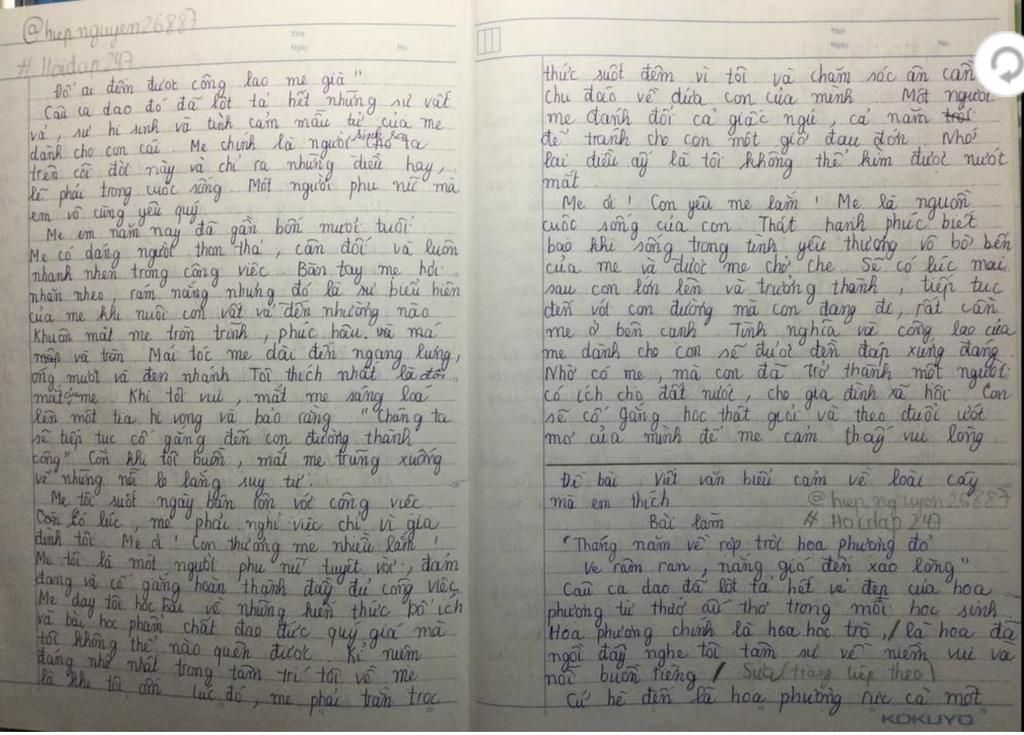 @hiepnguyen26887
# Hoidap247
Thứ
Ngày
No.
Đố ai đếm được công lao mẹ già"
Câu ca dao đó đã lột tả hết những sự vất
vả, sự hi sinh và tình cảm mẫu tử của mẹ
dành cho con cái. Mẹ chính là người sinh ra cho ta
trên cõi đời này và chỉ ra những điều hay,
lẽ phải trong cuộc sống. Một người phụ nữ mà
em vô cùng yêu quý.
Mẹ em năm nay đã gần bốn mươi tuổi
Mẹ có dáng người thon thả, cân đối và luôn
nhanh nhẹn trong công việc. Bàn tay mẹ hơi
nhăn nheo, rám nắng nhưng đó là sự biểu hiện
của mẹ khi nuôi con vất vả đến nhường nào
Khuôn mặt mẹ tròn trĩnh, phúc hậu và má
mập và trán. Mái tóc mẹ dài đến ngang lưng,
óng mượt và đen nhánh. Tôi thích nhất là đôi
mắt mẹ. Khi tôi vui, mắt mẹ sáng loá
lên một tia hi vọng và bảo rằng: "Chúng ta
sẽ tiếp tục cố gắng đến con đường thành
công" Còn khi tôi buồn, mắt mẹ trũng xuống
về những nỗi lo lắng suy tư.
Mẹ tôi suốt ngày bận rộn với công việc
Còn có lúc, mẹ phải nghỉ việc chỉ vì gia
đình tôi. Mẹ ơi! Con thương mẹ nhiều lắm!
Mẹ tôi là một người phụ nữ tuyệt vời, đảm
đang và cố gắng hoàn thành đầy đủ công việc.
Mẹ dạy tôi học bài về những kiến thức bổ ích
và bài học phẩm chất đạo đức quý giá mà
tôi không thể nào quên được. Kỉ niệm
đáng nhớ nhất trong tâm trí tôi về mẹ
là khi tôi ốm lúc đó, mẹ phải trằn trọc
Thứ
Ngày
No.
thức suốt đêm vì tôi và chăm sóc ân cần
chu đáo về đứa con của mình. Một người
mẹ đánh đổi cả giấc ngủ, cả năm trời
để tránh cho con một giờ đau đớn. Nhớ
lại điều ấy là tôi không thể kìm được nước
mắt.
Mẹ ơi! Con yêu mẹ lắm! Mẹ là nguồn
cuộc sống của con. Thật hạnh phúc biết
bao khi sống trong tình yêu thương vô bờ bến
của mẹ và được mẹ chở che. Sẽ có lúc mai
sau con lớn lên và trưởng thành, tiếp tục
đến với con đường mà con đang đi, rất cần
mẹ ở bên cạnh. Tình nghĩa và công lao của
mẹ dành cho con sẽ được đền đáp xứng đáng.
Nhờ có mẹ, mà con đã trở thành một người
có ích cho đất nước, cho gia đình xã hội. Con
sẽ cố gắng học thật giỏi và theo đuổi ước
mơ của mình để mẹ cảm thấy vui lòng
Đề bài Viết văn biểu cảm về loài cây
mà em thích @hiepnguyen26887
Bài làm # Hoidap247
"Tháng năm về rợp trời hoa phượng đỏ
Ve râm ran, nắng gió đến xao lòng"
Câu ca dao đã lột tả hết vẻ đẹp của hoa
phượng từ thở ấu thơ trong mỗi học sinh
Hoa phượng chính là hoa học trò, / là hoa đã
ngồi đấy nghe tôi tâm sự về niềm vui và
nỗi buồn riêng / Sửa (trang tiếp theo)
Cứ hè đến là hoa phượng rực cả một
KOKUYO